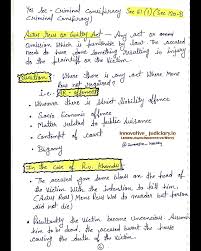 Yes Sec - Criminal Conspiracy Sec 61(1) (Sec 120-B
Criminal Conspiracy)
Actus Reus or Guilty Act - Any act or even
Omission which is punishable by law. The accused
need to have done something resulting in injury
to the plaintiff or the Victim.
Question: Where there is any act where Mens
Rea not required?
i.e.
offences
Wherever there is strict liability offence
Socio Economic offence
Matter related to public nuisance
Contempt of court
Bigamy
innovative_judiciary.io
In the Case of
The accused gave some blows on the head of
the Victim with the intention to kill him
(Actus Reus, Mens Rea was to murder but person
did not die)
Resultantly the Victim became unconscious. Assum-
him to be dead, the accused burnt the house
causing the death of the victim.